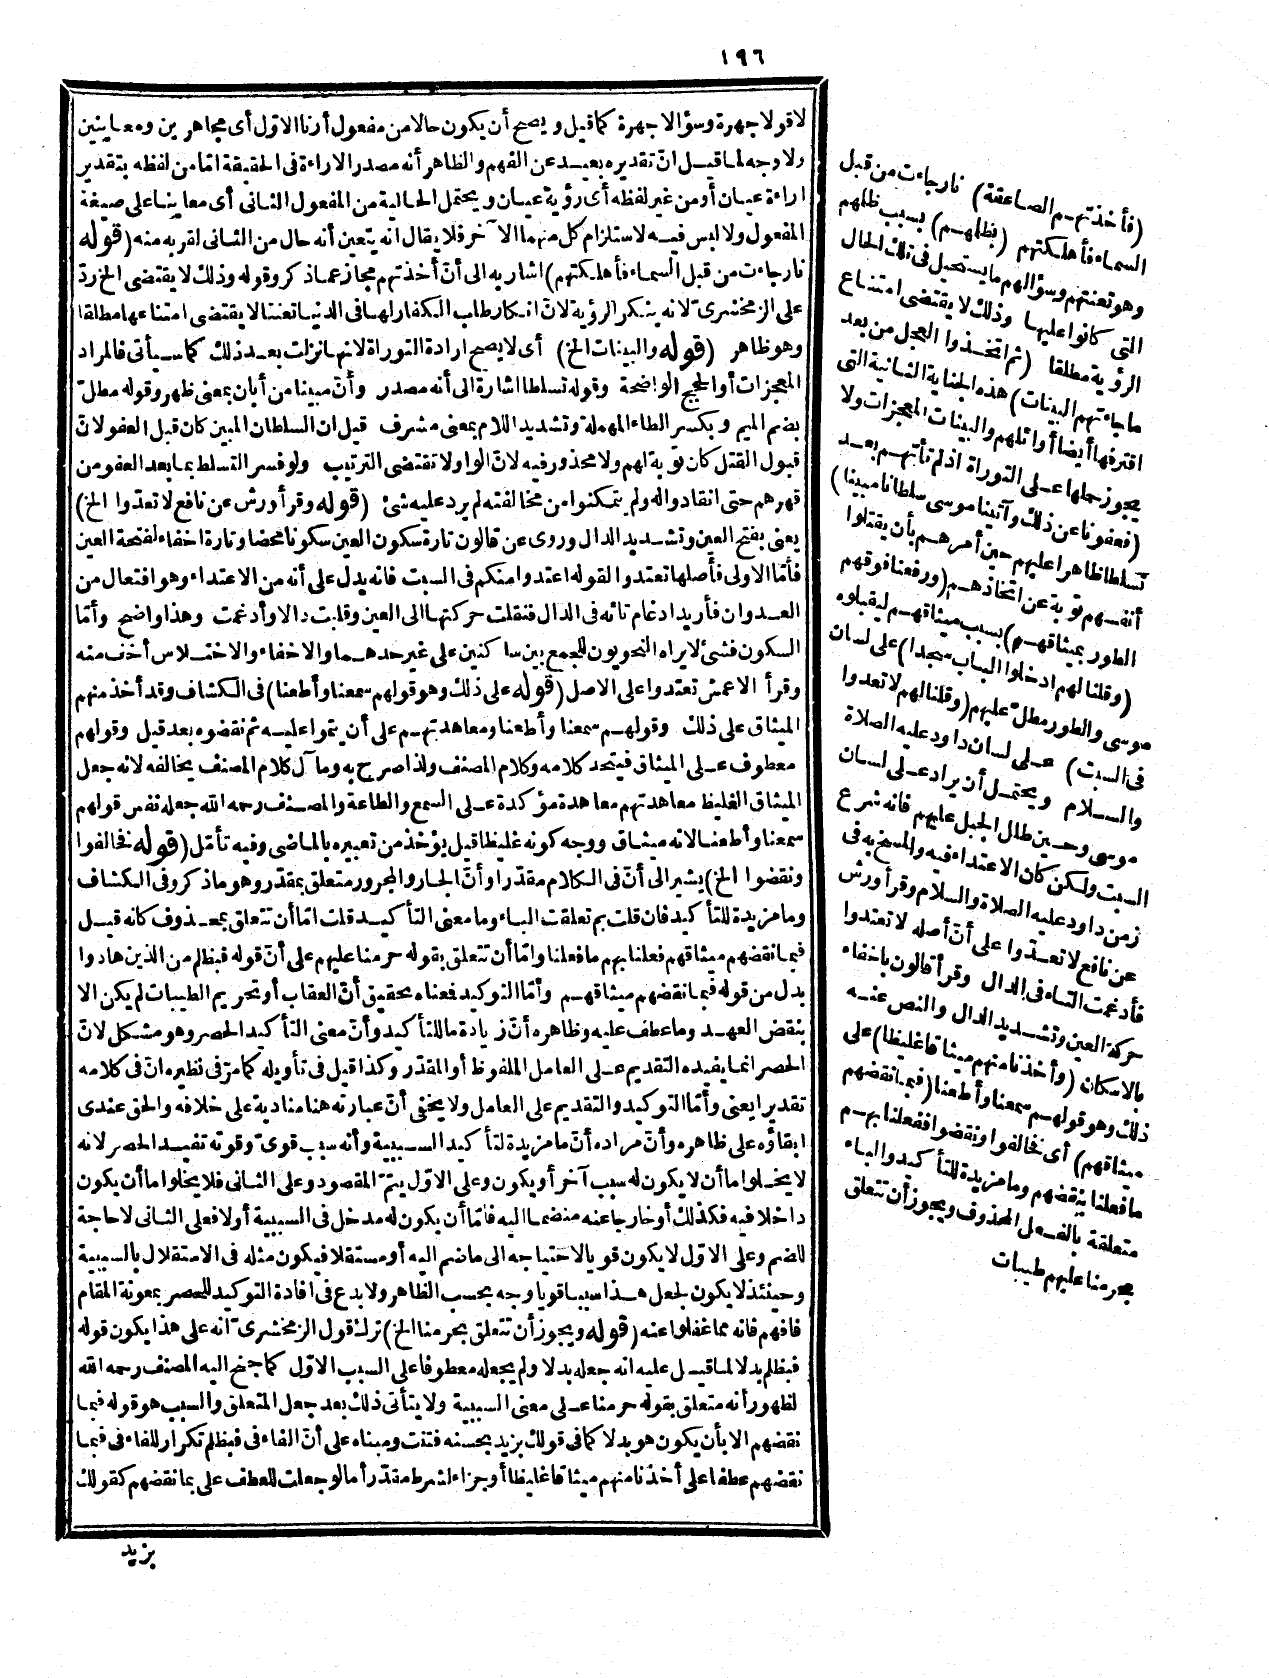 ١٩٦
لا قولا جهرة وسؤالا جهرة كما قيل ويصح أن يكون حالا من مفعول أرنا الاوّل أى مجاهرين ومعاينين
ولا وجه لما قيل انّ تقديره بعيد عن الفهم والظاهر أنه مصدر الاراءة فى الحقيقة امّا من لفظه بتقدير
اراءة عيان أو من غير لفظه أى رؤية عيان ويحتمل الحالية من المفعول الثانى أى معاينا على صيغة
المفعول ولا لبس فيه لاستلزام كل منهما الآخر فلا يقال انه يتعين أنه حال من الثانى لقربه منه (قوله
نار جاءت من قبل السماء فأهلكتهم) اشار به الى أنّ أخذتهم مجاز عماذكر وقوله وذلك لا يقتضى الخ ردّ
على الزمخشرىّ لانه ينكر الرؤية لانّ انكار طلب الكفار لها فى الدنيا تعنتا لا يقتضى امتناعها مطلقا
وهو ظاهر (قوله والبينات الخ) أى لا يصح ارادة التوراة لانها نزلت بعد ذلك كما سيأتى فالمراد
المعجزات أو الحجج الواضحة وقوله تسلطا اشارة الى أنه مصدر وأنّ مبينا من أبان بمعنى ظهر وقوله مطلّ
بضم الميم وبكسر الطاء المهملة وتشديد اللام بمعنى مشرف قيل ان السلطان المبين كان قبل العفو لانّ
قبول القتل كان توبة لهم ولا محذور فيه لانّ الواو لا تقتضى الترتيب ولو فسر التسلط بما بعد العفو من
قهرهم حتى انقادوا له ولم يتمكنوا من مخالفته لم يرد عليه شئ (قوله وقرأ ورش عن نافع لا تعدّوا الخ)
يعنى بفتح العين وتشديد الدال وروى عن قالون تارة سكون العين سكونا محضا وتارة اخفاء لفتحة العين
فأمّا الاولى فأصلها تعتدوا لقوله اعتدوا منكم فى السبت فانه يدل على أنه من الاعتداء وهو افتعال من
العدوان فأريد ادغام تائه فى الدال فنقلت حركتها الى العين وقلبت دالا وأدغمت وهذا واضح وأمّا
السكون فشئ لا يراه النحويون للجمع بين ساكنين على غير حدهما والاخفاء والاختلاس أخف منه
وقرأ الاعمش تعتدوا على الاصل (قوله على ذلك وهو قولهم سمعنا وأطعنا) فى الكشاف وقد أخذ منهم
الميثاق على ذلك وقولهم سمعنا وأطعنا ومعاهدتهم على أن يتموا عليه ثم نقضوه بعد قيل وقولهم
معطوف على الميثاق فيتحد كلامه وكلام المصنف ولذا صرح به ومآل كلام المصنف يخالفه لانه جعل
الميثاق الغليظ معاهدتهم معاهدة مؤكدة على السمع والطاعة والمصنف رحمه الله جعله نفس قولهم
سمعنا وأطعنا لانه ميثاق ووجه كونه غليظا قيل يؤخذ من تعبيره بالماضى وفيه تأمّل (قوله فخالفوا
ونقضوا الخ) يشير الى أنّ فى الكلام مقدّرا وأنّ الجار والمجرور متعلق بمقدر وهو ما ذكر وفى الكشاف
وما مزيدة للتأكيد فان قلت بم تعلقت الباء وما معنى التأكيد قلت امّا أن تتعلق بمحذوف كانه قيل
فبما نقضهم ميثاقهم فعلنا بهم ما فعلنا وامّا أن تتعلق بقوله حرمنا عليهم على أنّ قوله فبظلم من الذين هادوا
بدل من قوله فبما نقضهم ميثاقهم وأمّا التوكيد فمعناه تحقيق أنّ العقاب أو تحريم الطيبات لم يكن الا
بنقض العهد وما عطف عليه وظاهره أنّ زيادة ما للتأكيد وأنّ معنى التأكيد الحصر وهو مشكل لانّ
الحصر انما يفيده التقديم على العامل الملفوظ أو المقدّر وكذا قيل فى تأويله كما مرّ فى نظيره انّ فى كلامه
تقديرا يعنى وأمّا التوكيد والتقديم على العامل ولا يخفى أنّ عبارته هنا منادية على خلافه والحق عندى
ابقاؤه على ظاهره وأنّ مراده أنّ ما مزيدة لتأكيد السببية وأنه سبب قوىّ وقوته تفيد الحصر لانه
لا يخلوا ما أن لا يكون له سبب آخر أو يكون وعلى الاوّل يتمّ المقصود وعلى الثانى فلا يخلوا ما أن يكون
داخلا فيه فكذلك أو خارجا عنه منضما اليه فامّا أن يكون له مدخل فى السببية أو لا فعلى الثانى لا حاجة
للضم وعلى الاوّل لا يكون قويا لاحتياجه الى ما ضم اليه أو مستقلا فيكون مثله فى الاستقلال بالسببية
وحينئذ لا يكون لجعل هذا سببا قويا وجه بحسب الظاهر ولا بدع فى افادة التوكيد للحصر بمعونة المقام
فافهم فانه مما غفلوا عنه (قوله ويجوز أن تتعلق بحرمنا الخ) ترك قول الزمخشرىّ انه على هذا يكون قوله
فبظلم بدلا لما قيل عليه انه جعله بدلا ولم يجعله معطوفا على السبب الاوّل كما جنح اليه المصنف رحمه الله
لظهور أنه متعلق بقوله حرمنا على معنى السببية ولا يتأتى ذلك بعد جعل المتعلق والسبب هو قوله فبما
نقضهم الا بأن يكون هو بدلا كما فى قولك بزيد بحسنه فتنت ومبناه على أنّ الفاء فى فبظلم تكرار للفاء فى فبما
نقضهم عطفا على أخذنا منهم ميثاقا غليظا أو جزاء لشرط مقدّر أما لو جعلت للعطف على بما نقضهم كقولك
بزيد
(فأخذتهم الصاعقة) نار جاءت من قبل
السماء فأهلكتهم (بظلمهم) بسبب ظلمهم
وهو تعنتهم وسؤالهم ما يستحيل فى تلك الحال
التى كانوا عليها وذلك لا يقتضى امتناع
الرؤية مطلقا (ثم اتخذوا العجل من بعد
ما جاءتهم البينات) هذه الجناية الثانية التى
اقترفها أيضا أوائلهم والبينات المعجزات ولا
يجوز حملها على التوراة اذ لم تأتهم بعد
(فعفونا عن ذلك وآتينا موسى سلطانا مبينا)
تسلطا ظاهرا عليهم حين أمرهم بأن يقتلوا
أنفسهم توبة عن اتخاذهم (ورفعنا فوقهم
الطور بميثاقهم) بسبب ميثاقهم ليقبلوه
(وقلنا لهم ادخلوا الباب سجدا) على لسان
موسى والطور مطلّ عليهم (وقلنا لهم لا تعدوا
فى السبت) على لسان داود عليه الصلاة
والسلام ويحتمل أن يراد على لسان
موسى وحين طلل الجبل عليهم فانه شرع
السبت ولكن كان الاعتداء فيه والمسخ به فى
زمن داود عليه الصلاة والسلام وقرأ ورش
عن نافع لا تعدّوا على أنّ أصله لا تعتدوا
فأدغمت التاء فى الدال وقرأ قالون باخفاء
حركة العين وتشديد الدال والنص عنه
بالاسكان (وأخذنا منهم ميثاقا غليظا) على
ذلك وهو قولهم سمعنا وأطعنا (فبما نقضهم
ميثاقهم) أى فخالفوا ونقضوا ففعلنا بهم
ما فعلنا بنقضهم وما مزيدة للتأكيد والباء
متعلقة بالفعل المحذوف ويجوز أن تتعلق
بحرمنا عليهم طيبات